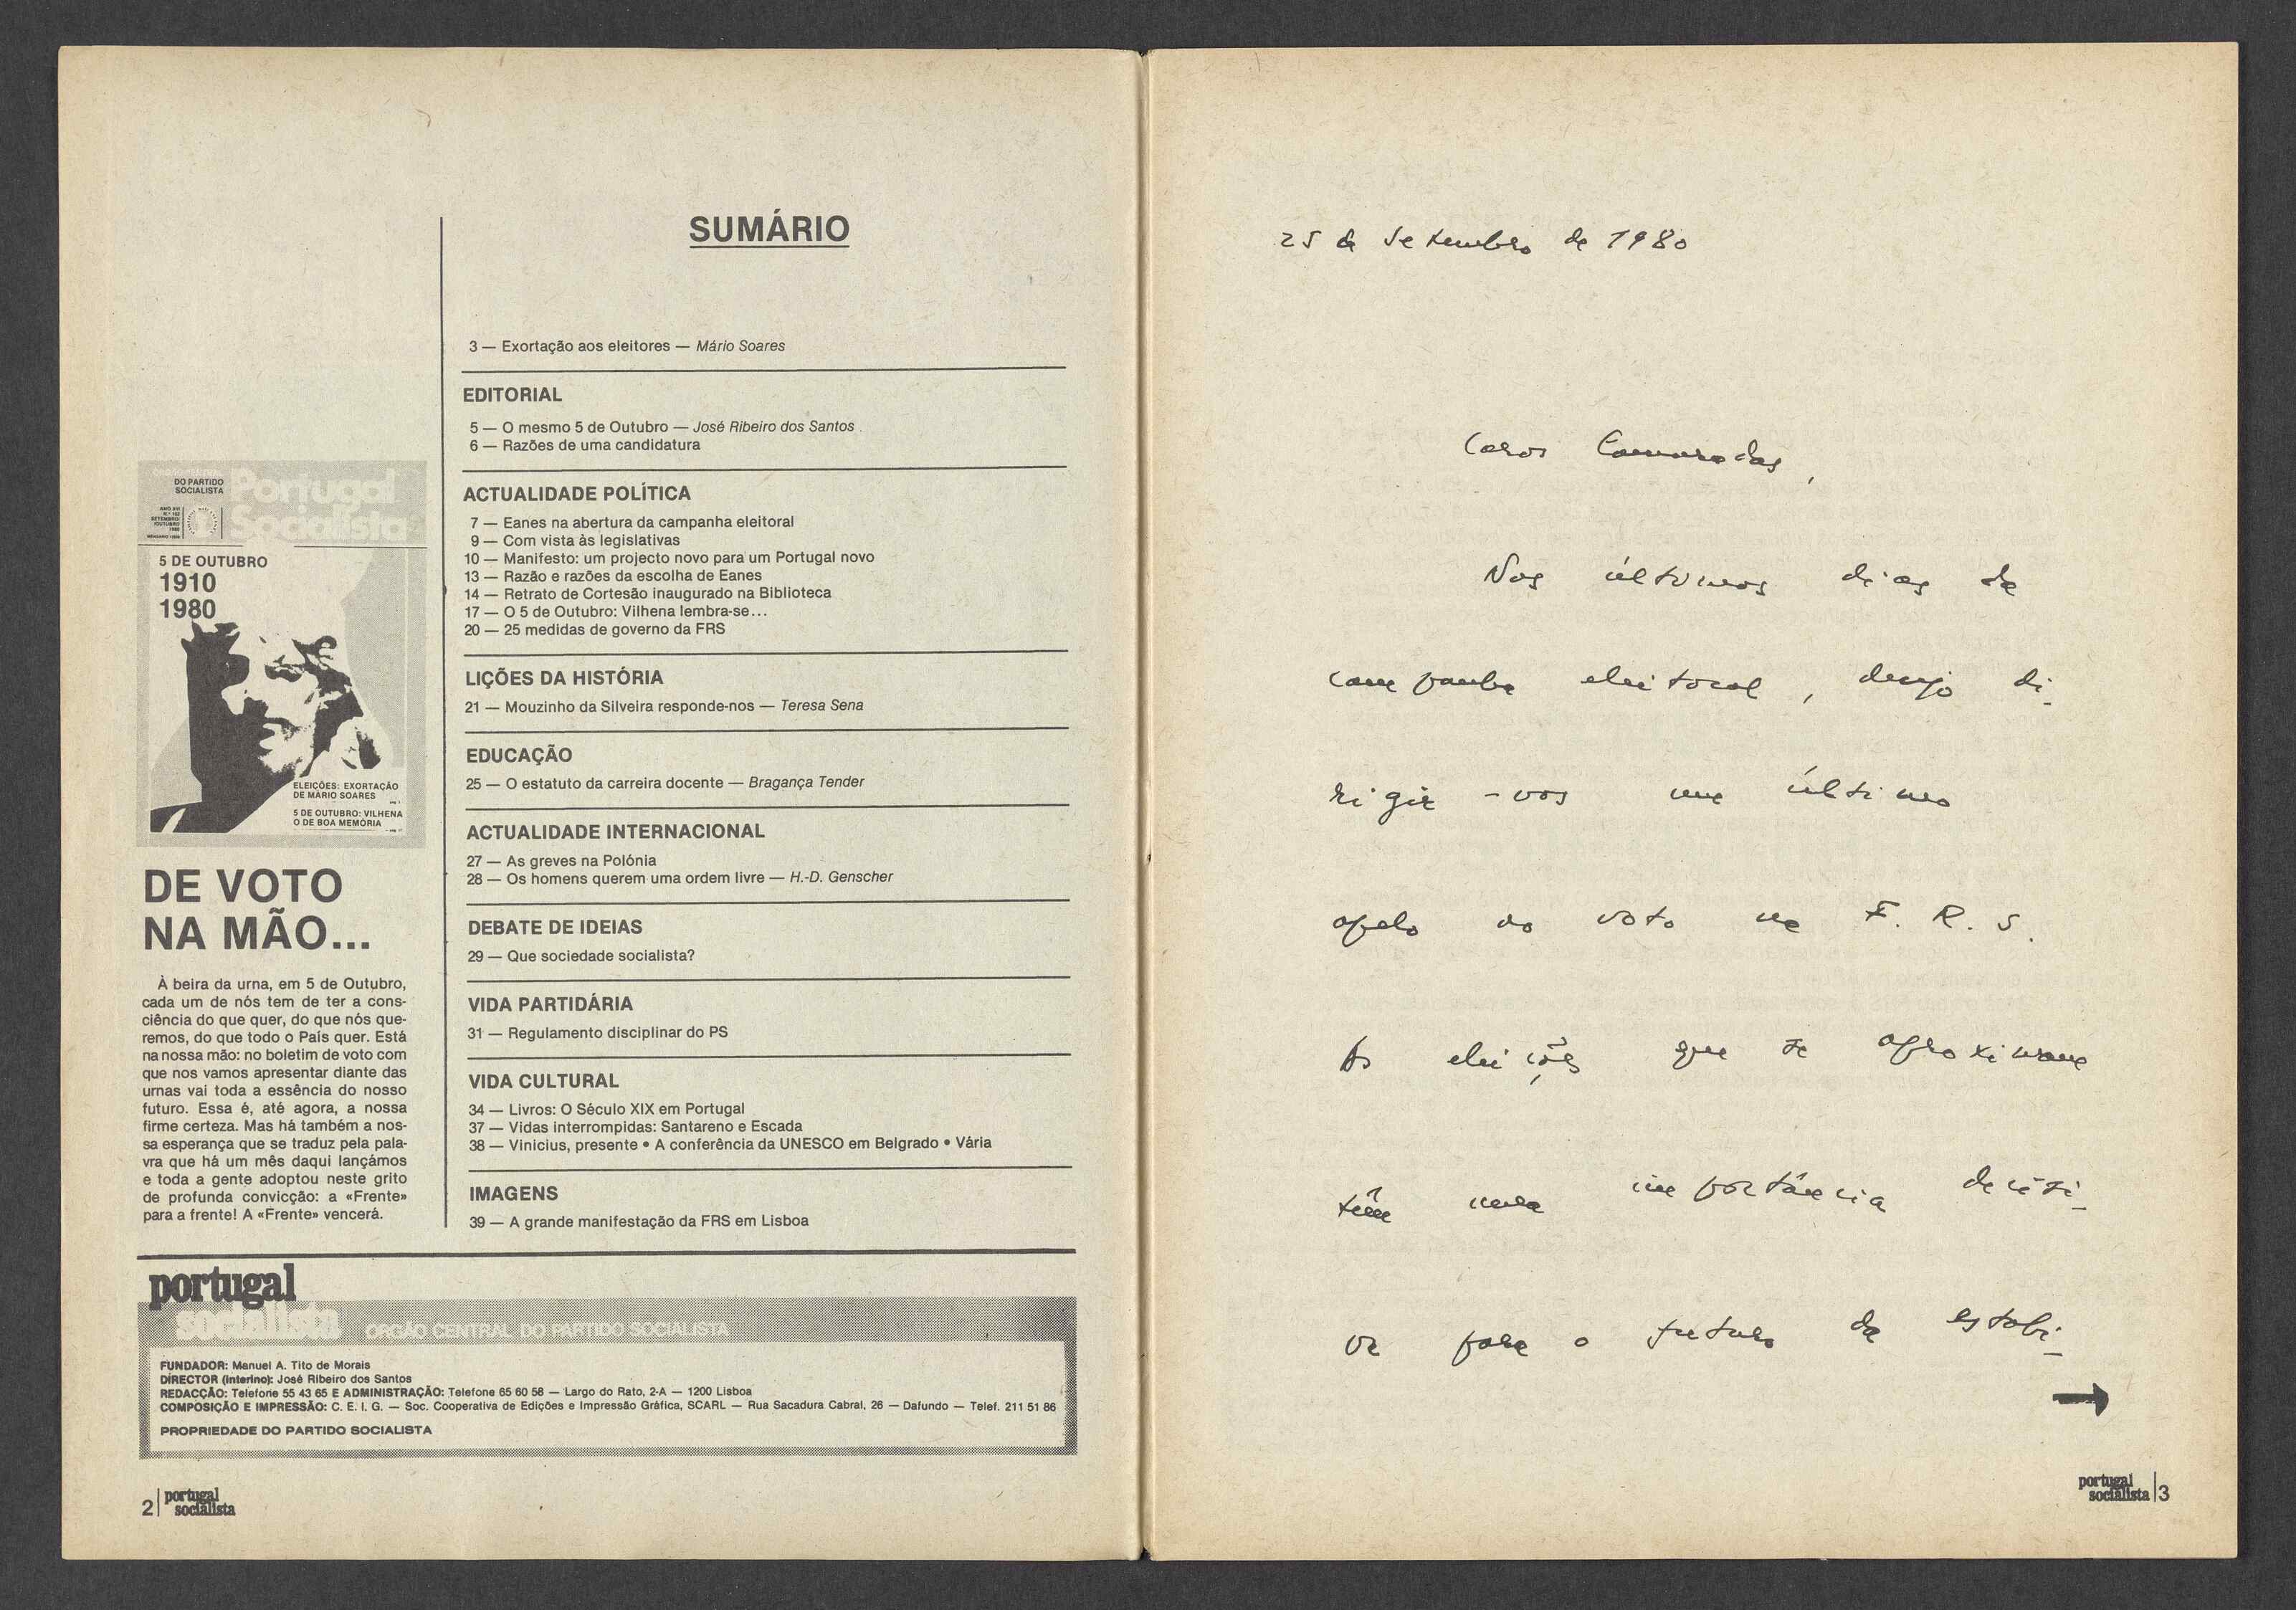 SUMÁRIO
3 — Exortação aos eleitores — Mário Soares
EDITORIAL
5 — O mesmo 5 de Outubro — José Ribeiro dos Santos
6 — Razões de uma candidatura
ACTUALIDADE POLÍTICA
7 — Eanes na abertura da campanha eleitoral
9 — Com vista às legislativas
10 — Manifesto: um projecto novo para um Portugal novo
13 — Razão e razões da escolha de Eanes
14 — Retrato de Cortesão inaugurado na Biblioteca
17 — O 5 de Outubro: Vilhena lembra-se...
20 — 25 medidas de governo da FRS
LIÇÕES DA HISTÓRIA
21 — Mouzinho da Silveira responde-nos — Teresa Sena
EDUCAÇÃO
25 — O estatuto da carreira docente — Bragança Tender
ACTUALIDADE INTERNACIONAL
27 — As greves na Polónia
28 — Os homens querem uma ordem livre — H.-D. Genscher
DEBATE DE IDEIAS
29 — Que sociedade socialista?
VIDA PARTIDÁRIA
31 — Regulamento disciplinar do PS
VIDA CULTURAL
34 — Livros: O Século XIX em Portugal
37 — Vidas interrompidas: Santareno e Escada
38 — Vinicius, presente • A conferência da UNESCO em Belgrado • Vária
IMAGENS
39 — A grande manifestação da FRS em Lisboa
DO PARTIDO
SOCIALISTA
Portugal
Socialista
5 DE OUTUBRO
1910
1980
ELEIÇÕES: EXORTAÇÃO
DE MÁRIO SOARES
5 DE OUTUBRO: VILHENA
O DE BOA MEMÓRIA
DE VOTO
NA MÃO...
À beira da urna, em 5 de Outubro,
cada um de nós tem de ter a cons-
ciência do que quer, do que nós que-
remos, do que todo o País quer. Está
na nossa mão: no boletim de voto com
que nos vamos apresentar diante das
urnas vai toda a essência do nosso
futuro. Essa é, até agora, a nossa
firme certeza. Mas há também a nos-
sa esperança que se traduz pela pala-
vra que há um mês daqui lançámos
e toda a gente adoptou neste grito
de profunda convicção: a «Frente»
para a frente! A «Frente» vencerá.
portugal
socialista ORGÃO CENTRAL DO PARTIDO SOCIALISTA
FUNDADOR: Manuel A. Tito de Morais
DIRECTOR (interino): José Ribeiro dos Santos
REDACÇÃO: Telefone 55 43 65 E ADMINISTRAÇÃO: Telefone 65 60 58 — Largo do Rato, 2-A — 1200 Lisboa
COMPOSIÇÃO E IMPRESSÃO: C. E. I. G. — Soc. Cooperativa de Edições e Impressão Gráfica, SCARL — Rua Sacadura Cabral, 26 — Dafundo — Telef. 211 51 86
PROPRIEDADE DO PARTIDO SOCIALISTA
2 portugal
socialista
25 de Setembro de 1980
Caros Camaradas,
Nos últimos dias da
campanha eleitoral, desejo di-
rigir-vos um último
apelo ao voto na F. R. S.
As eleições que se aproximam
têm uma importância decisi-
va para o futuro da estabi-
portugal
socialista 3